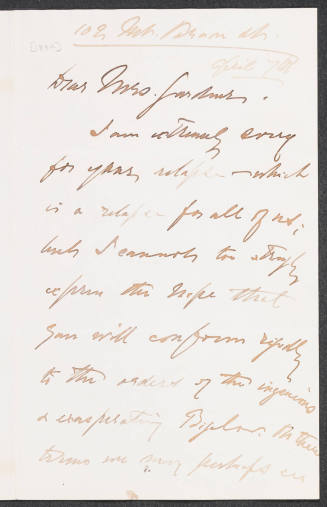 [1884]
102 Mt. Vernon St.
April 7th
Dear Mrs. Gardner.
I am extremely sorry
for your relapse – which
is a relapse for all of us;
but I cannot too strongly
express the hope that
you will conform rigidly
to the orders of the ingenious
& exasperating Bigelow. On these
terms we may perhaps